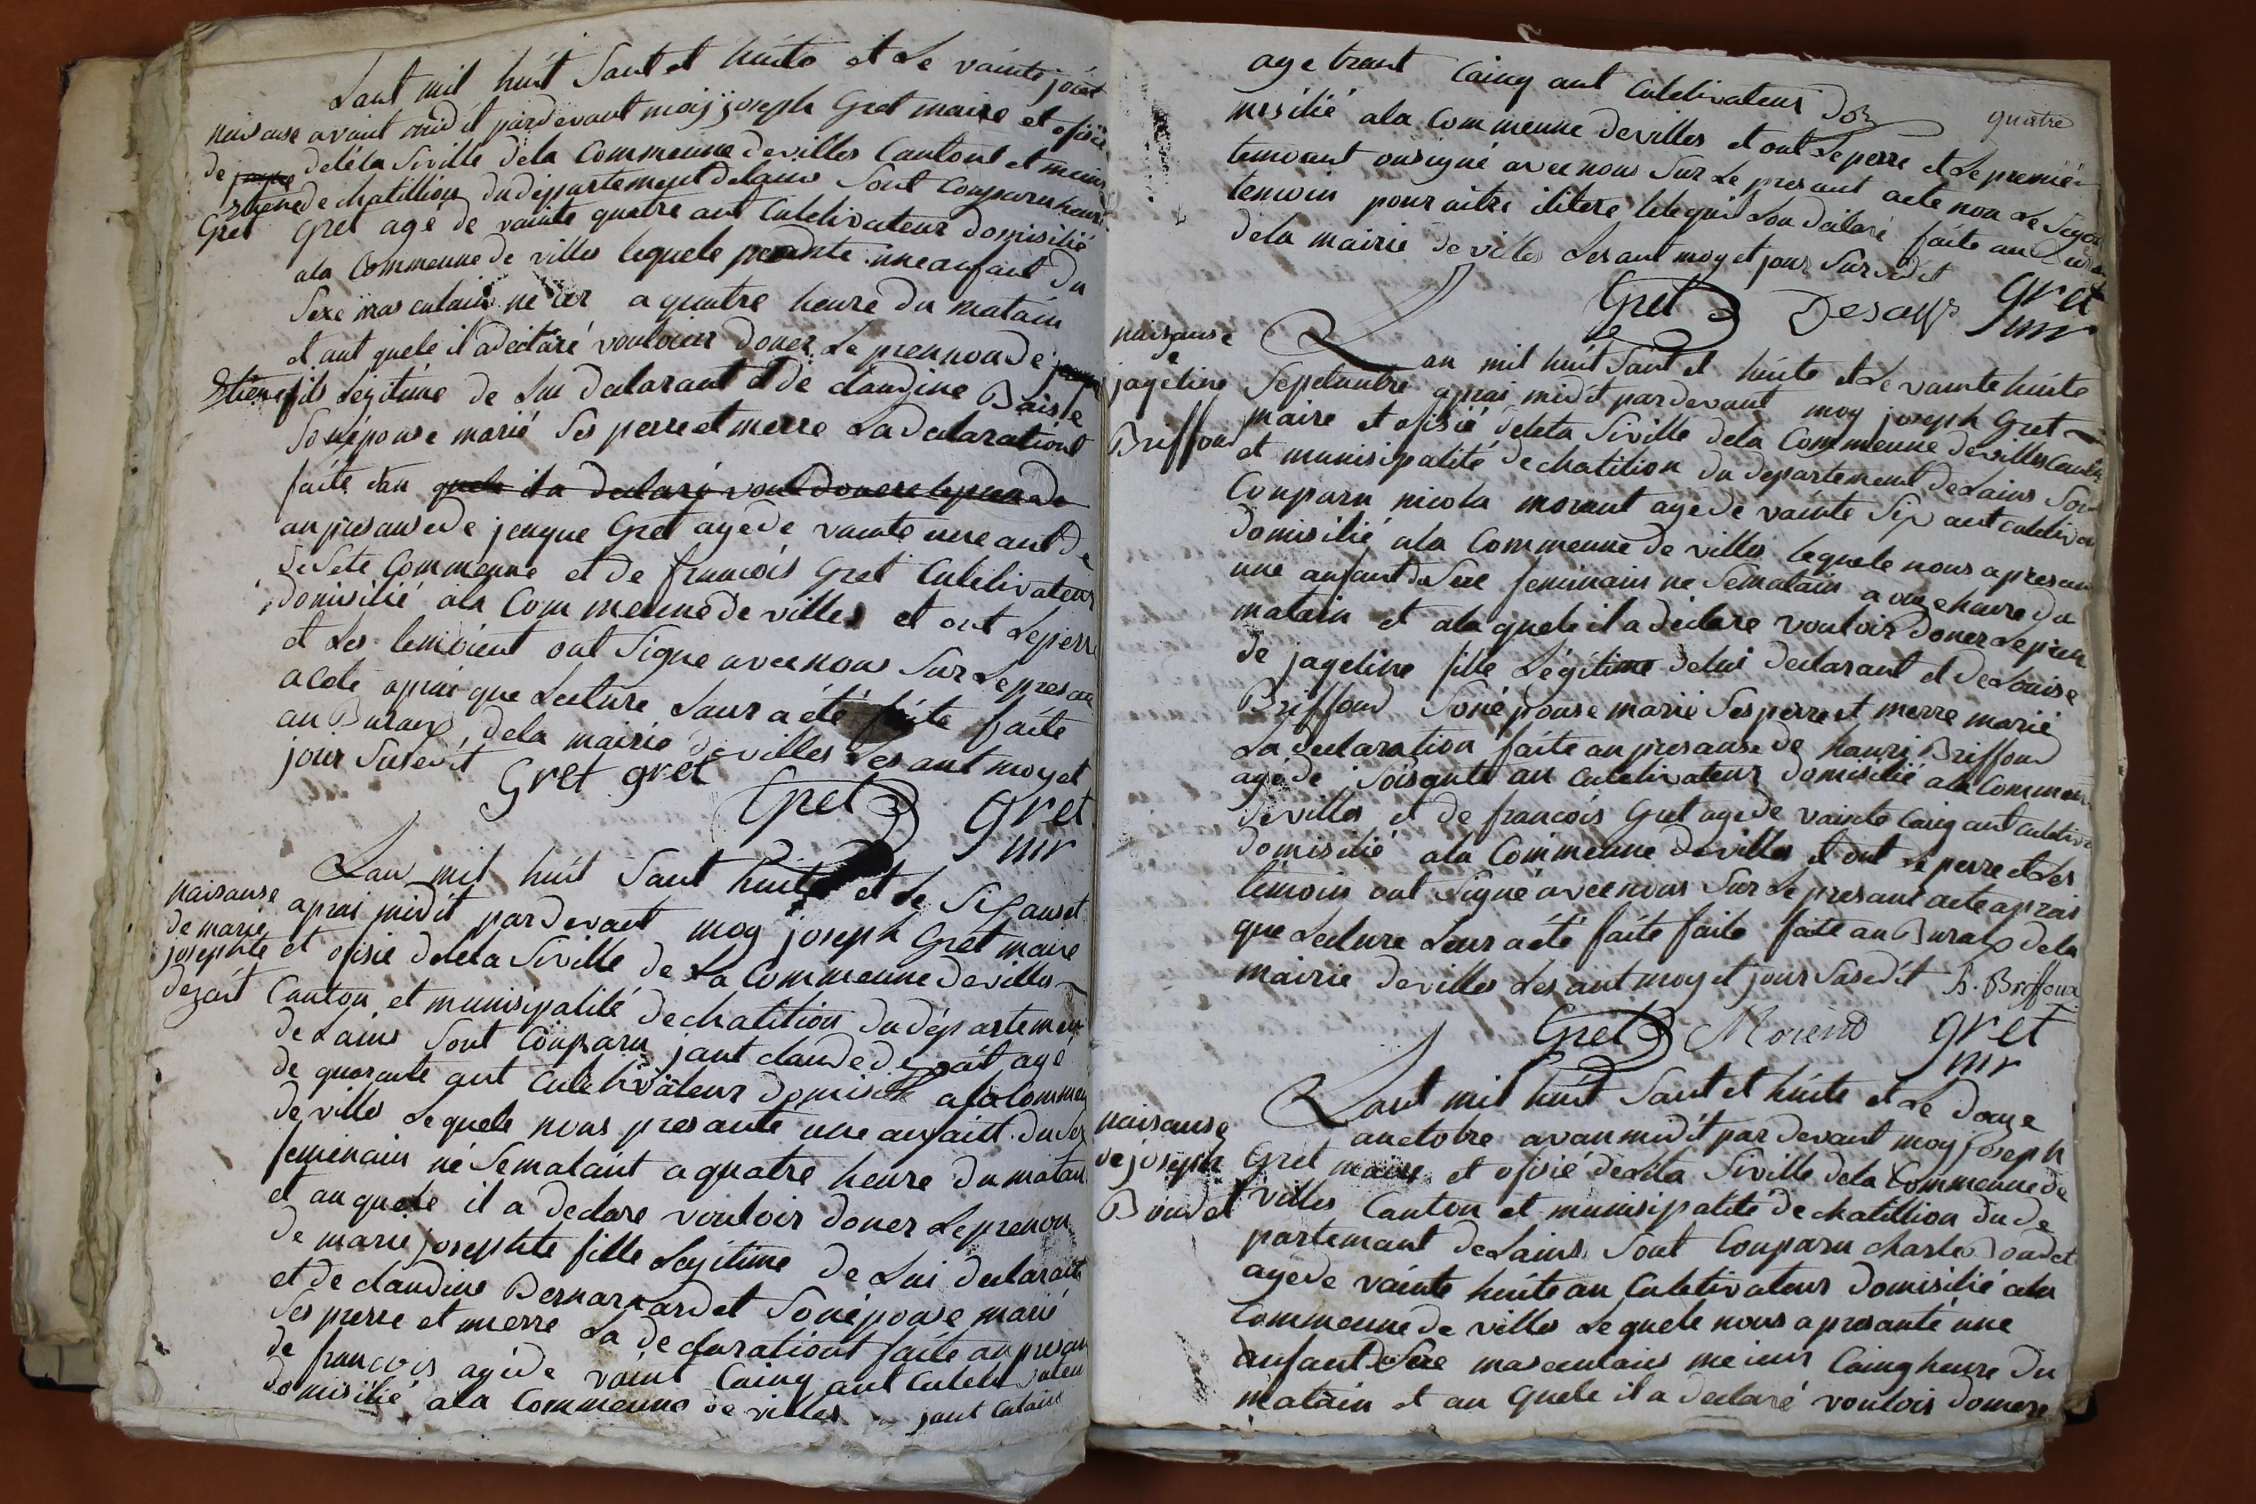 Lant mil huit Sant et huite et Le vainte jöuet
naisanse avant midit pardevant moij joseph Gret maire et ofisie
de jaque deléta Siville dela Commeune devilles Cantont et munis
Etiene de chatillion du département delains Sont Conparu
Gret Gret agé de vainte quatre ant Culetivateur domisilié
ala Commeune de villes lequele presante une anfant du
Sexe masculain ne ier a quatre heure du matain
et aut quele il adeclaré vouloir doner Le prennon de jaque
Etiene fils Legitime de Lui declarant et de claudine Baisle
Sonépouse marié Ses perre et merre La declarationt
faite dan quele il a declaré voul donere lepren de
an presanse de jenque Gret agé de vainte une ant de
desete Commeune et de francois Gret Culetivateur
domisilié ala Commeune de villes et ont Leperre
et Les temoient ont Signe avecnous Sur Le presan
acete aprai que Lecture Leur a été faite faite
au Buraux dela mairie de villes Les ant moy et
jour Susedit Gret gret
Gret gret
mr
Lan mil huit Sant huite et Le Sis auset
naisanse aprai midit pardevant moy joseph Gret maire
de marie
josephte et ofisie deleta Siville de La Commeune devilles
dezait Canton et munisipalité dechatition du département
de Lains Sont Conparu jant claude dezait agé
de quarante ant Culetivateur domisilié ala Commeu
de villes Lequele nous presante une anfant du Sex
feminain né Semataint a quatre heure du matain
et au quele il a declare vouloir doner Leprenon
de marie josephte fille Legitime de Lui declarant
et de claudine Bernarnardet Sonépouse marié
Ses pierre et merre La declarationt faite an presan
de francois agéde vaint Cainq ant Culetivateur
domisilié ala Commeune de villes jant Culaint
age trant Cainq ant Culetivateur do
quatre
mesilié ala Commeune devilles et ont Leperre et Lepremié
temoient onsigné avec nous Sur Le presant acte non Le Segon
temoin pour aitre ilitere lele qui Lon déclaré faite au Bura
dela mairie de villes Les ant moy et jour Surdit
Gret Desayt gret
mr
naisanse Lan mil huit Sant et huite et Le vainte huite
de
jaqeline Sepetanbre aprai midit pardevant moy joseph Gret
maire et ofisié deleta Siville dela Commeune devilles Canton
Briffoud et munisipalité dechatition du departement deLains Son
Conparu nicola morant agé de vainte Sip ant culetiva
domisilié ala Commeune de villes lequele nous apresan
une anfant du Sexe feminain ne Sematain a onze heure du
matain et ala quele il a déclare vouloir doner Lepren
de jaqeline fille Légitime delui declarant et deLouise
Briffoud Sonépouse marié Ses perre et merre marié
La declaration faite an presanse de hanri Briffoud
agé de Soisante an culetivateur domisilié ala Commeune
de villes et de francois Gret agede vainte Cainq ant culetiva
domisilié ala Commeune devilles et ont Le perre et Les
témoins ont Signé avec nous Sur Le presant acte aprai
que Lecture Leur a été faite faite faite au Buraux dela
mairie devilles Les ant moy et jour Susedit h. Briffoux
Gret Morend gret
mr
Lant mil huit Sant et huite et Le douze
naisanse auctobre avan midit par devant moy joseph
de joseph Gret maire et ofisié deleta Siville dela Commeune de
Boudet villes Canton et munisipalité de chatillion du de
partemant deLains Sont Conparu charle Boudet
agede vainte huite an Culetivateur domisilié ala
Commeune de villes Lequele nous apresanté une
anfant du Sexe masculains ne ieur Cainq heure du
matain et au quele il a declaré voulois donnere